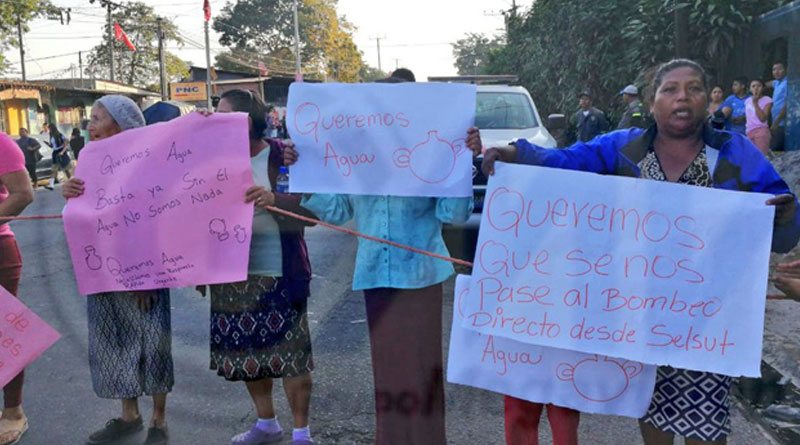 PNC
Queremos Agua
Basta ya Sin El
Agua No Somos Nada
Queremos Agua
Queremos
Agua
Queremos
Que se nos
Pase al Bombeo
Directo desde Selsut
Agua
de